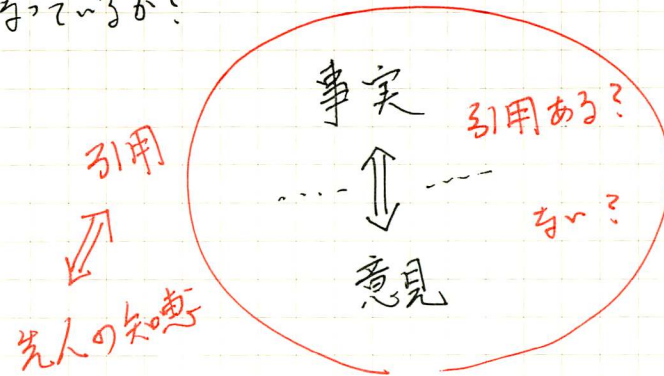 なっているか?
事実
引用ある?
引用
ない?
意見
先人の知恵